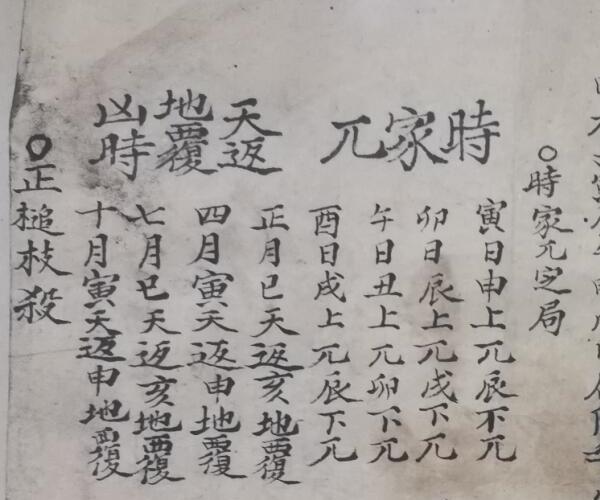 ○時家兀㝎局
時家兀
寅日申上兀辰不兀
卯日辰上兀戌下兀
午日丑上兀卯下兀
酉日戌上兀辰下兀
天返地覆凶時
正月巳天返亥地覆
四月寅天返申地覆
七月巳天返亥地覆
十月寅天返申地覆
○正槌枝殺